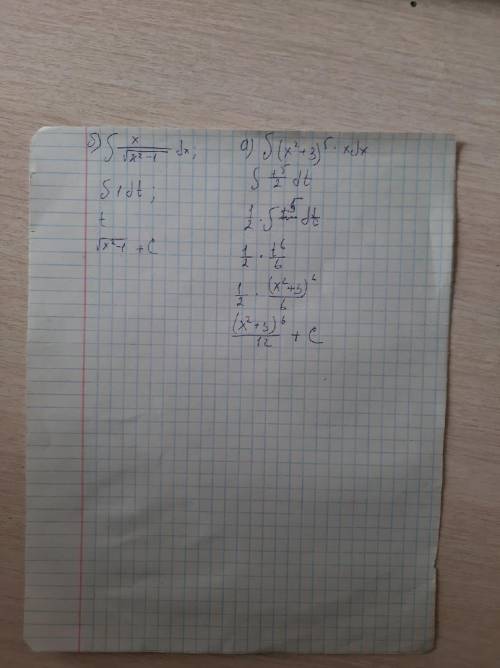 б) ∫ x/√(x²-1) dx;
∫ 1 dt;
t
√(x²-1) + C
а) ∫ (x²+3)⁵ · x dx
∫ t⁵/2 dt
1/2 · ∫ t⁵ dt
1/2 · t⁶/6
1/2 · (x²+3)⁶/6
(x²+3)⁶/12 + C